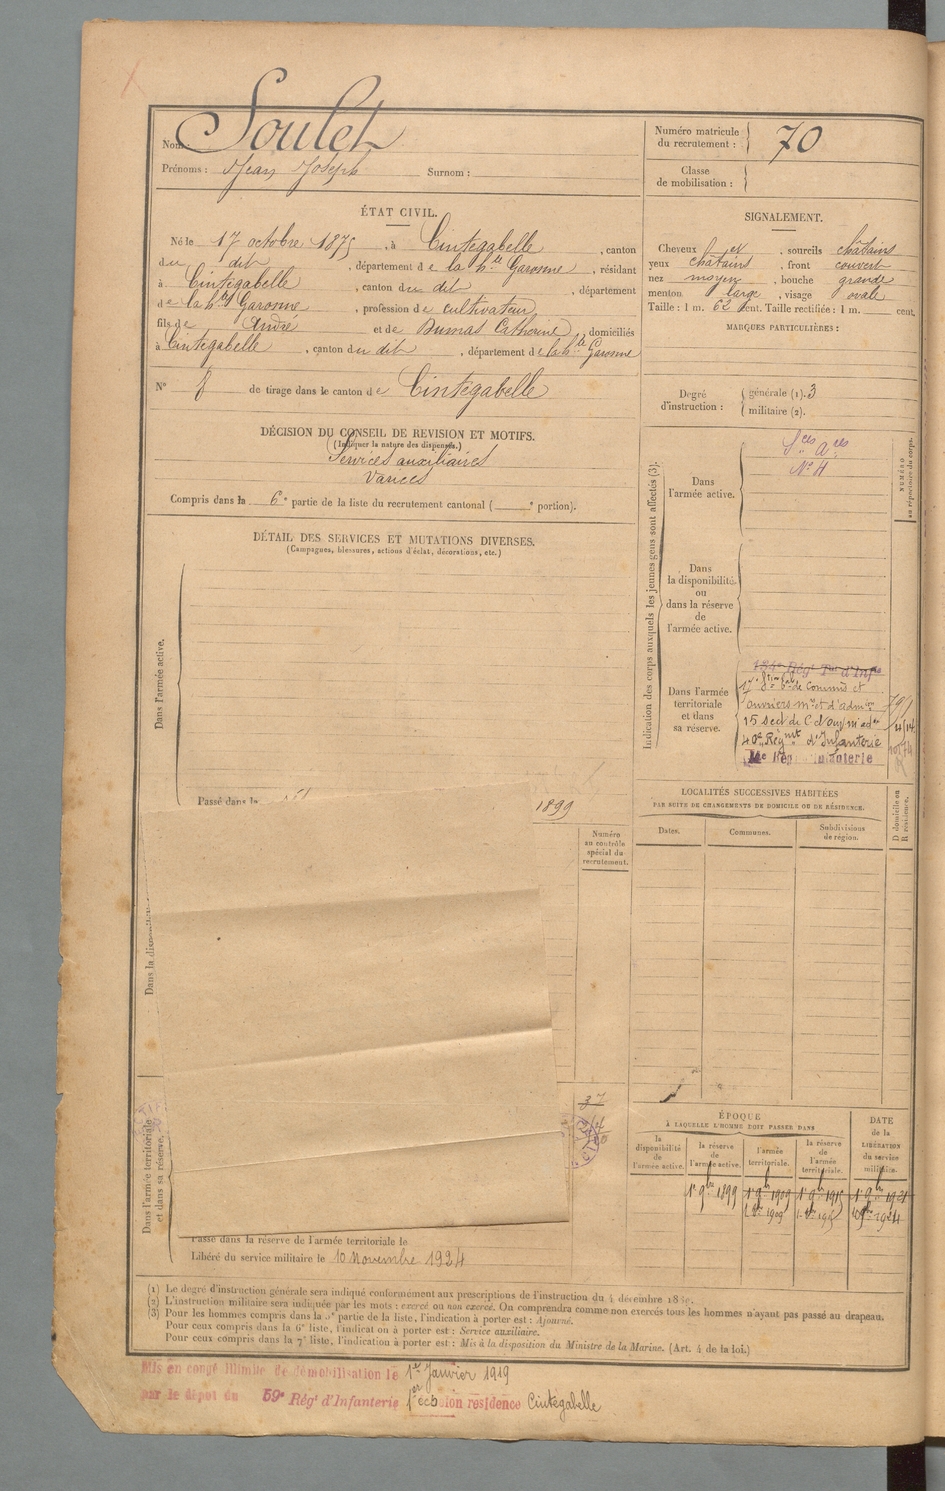 Nom: Soulet
Prénoms : Jean Joseph Surnom :
Numéro matricule du recrutement : 70
Classe de mobilisation :
ÉTAT CIVIL.
Né le 17 octobre 1875, à Cintegabelle, canton
du dit, département de la hte Garonne, résidant
à Cintegabelle, canton du dit, département
de la hte Garonne, profession de cultivateur
fils de André et de Dumas Catherine, domiciliés
à Cintegabelle, canton du dit, département de la hte Garonne
N° 8 de tirage dans le canton de Cintegabelle
SIGNALEMENT.
Cheveux et, sourcils châtains
yeux châtains, front couvert
nez moyen, bouche grande
menton large, visage ovale
Taille : 1 m. 62 cent. Taille rectifiée : 1 m. cent.
MARQUES PARTICULIÈRES :
Degré d'instruction :
générale (1). 3
militaire (2).
DÉCISION DU CONSEIL DE REVISION ET MOTIFS.
(Indiquer la nature des dispenses.)
Services auxiliaires
Varices
Compris dans la 6e partie de la liste du recrutement cantonal ( e portion).
DÉTAIL DES SERVICES ET MUTATIONS DIVERSES.
(Campagnes, blessures, actions d'éclat, décorations, etc.)
Dans l'armée active.
Passé dans la 1899
Numéro au contrôle spécial du recrutement.
Dans l'armée territoriale et dans sa réserve.
Passé dans la réserve de l'armée territoriale le
Libéré du service militaire le 10 Novembre 1924
Indication des corps auxquels les jeunes gens sont affectés (3).
NUMÉRO au répertoire du corps.
Dans l'armée active.
Sces Aces
N° 4
Dans la disponibilité ou dans la réserve de l'armée active.
Dans l'armée territoriale et dans sa réserve.
134e Régt Tal d'Infie
ouvriers
40e Régmt d'Infanterie
Infanterie
LOCALITÉS SUCCESSIVES HABITÉES
PAR SUITE DE CHANGEMENTS DE DOMICILE OU DE RÉSIDENCE.
Dates.
Communes.
Subdivisions de région.
D domicile ou R résidence.
ÉPOQUE
À LAQUELLE L'HOMME DOIT PASSER DANS
la disponibilité de l'armée active.
la réserve de l'armée active.
l'armée territoriale.
la réserve de l'armée territoriale.
DATE de la LIBÉRATION du service militaire.
1er 9bre 1899
1er 9bre 1909
1er 9bre 1915
1909
(1) Le degré d'instruction générale sera indiqué conformément aux prescriptions de l'instruction du 4 décembre
(2) L'instruction militaire sera indiquée par les mots : exercé ou non exercé. On comprendra comme non exercés tous les hommes n'ayant pas passé au drapeau.
(3) Pour les hommes compris dans la 5e partie de la liste, l'indication à porter est : Ajourné.
Pour ceux compris dans la 6e liste, l'indication à porter est : Service auxiliaire.
Pour ceux compris dans la 7e liste, l'indication à porter est : Mis à la disposition du Ministre de la Marine. (Art. 4 de la loi.)
Mis en congé illimité de démobilisation le 1er Janvier 1919
par le dépôt du 59e Régt d'Infanterie 1er échelon résidence Cintegabelle